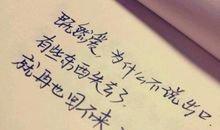 既然爱，为什么不说出口
有些东西失去了
就再也回不来